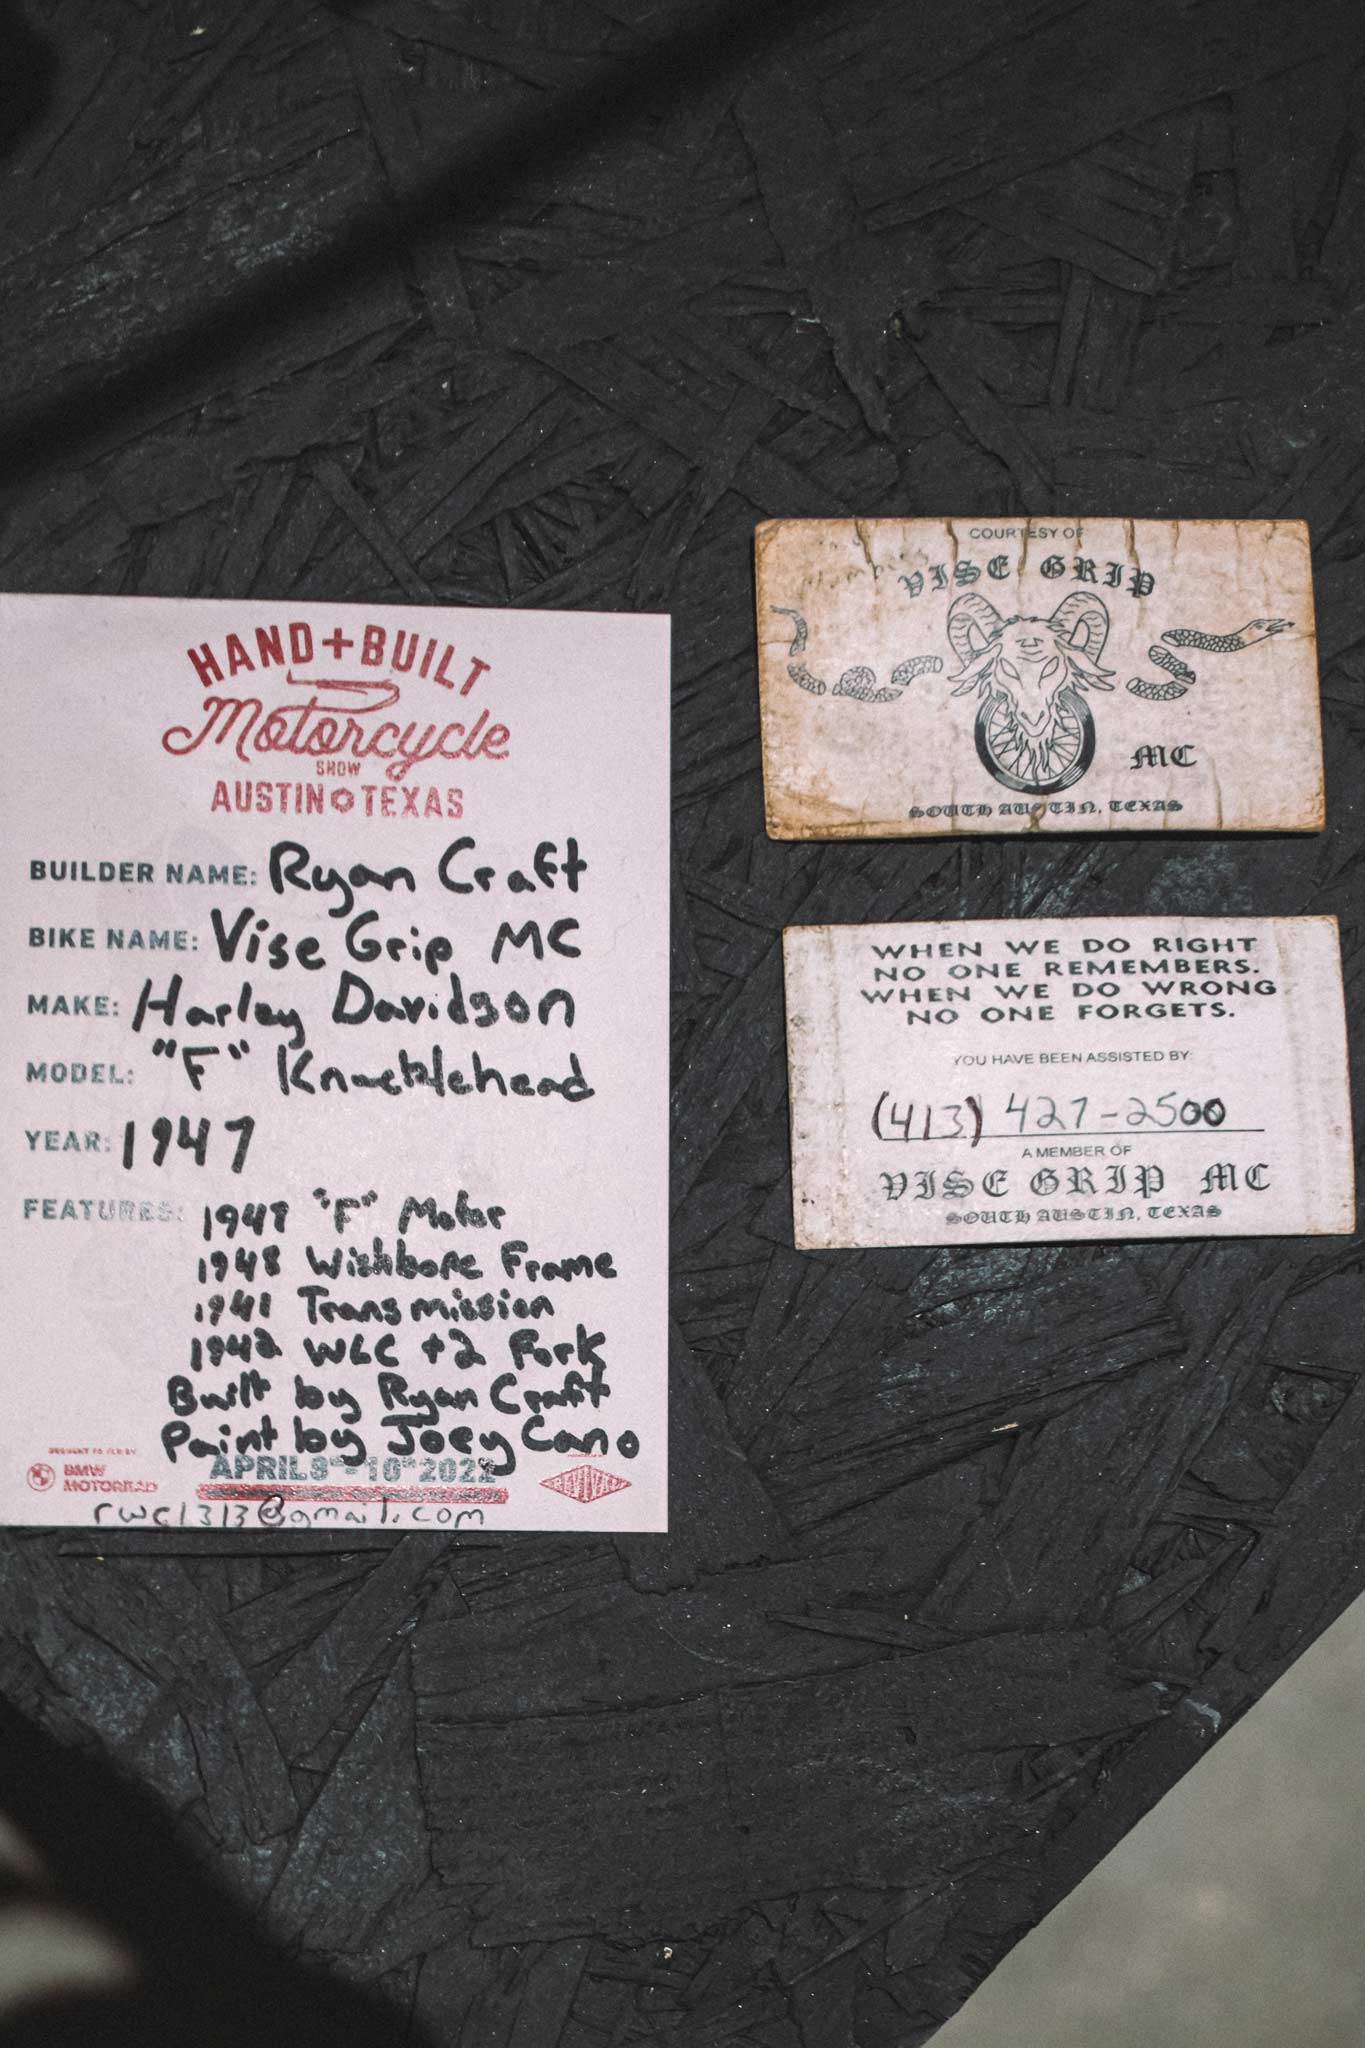 HAND+BUILT
Motorcycle
SHOW
AUSTIN TEXAS
BUILDER NAME: Ryan Craft
BIKE NAME: Vise Grip MC
MAKE: Harley Davidson
MODEL: "F" Knucklehead
YEAR: 1947
FEATURES: 1947 "F" Motor
1948 Wishbone Frame
1941 Transmission
1942 WLC +2 Fork
Built by Ryan Craft
Paint by Joey Cano
BROUGHT TO YOU BY
BMW
MOTORRAD
APRIL 9TH-10TH 2022
REVIVAL
rwc1313@gmail.com
COURTESY OF
VISE GRIP
MC
SOUTH AUSTIN, TEXAS
WHEN WE DO RIGHT
NO ONE REMEMBERS.
WHEN WE DO WRONG
NO ONE FORGETS.
YOU HAVE BEEN ASSISTED BY:
(413) 427-2500
A MEMBER OF
VISE GRIP MC
SOUTH AUSTIN, TEXAS